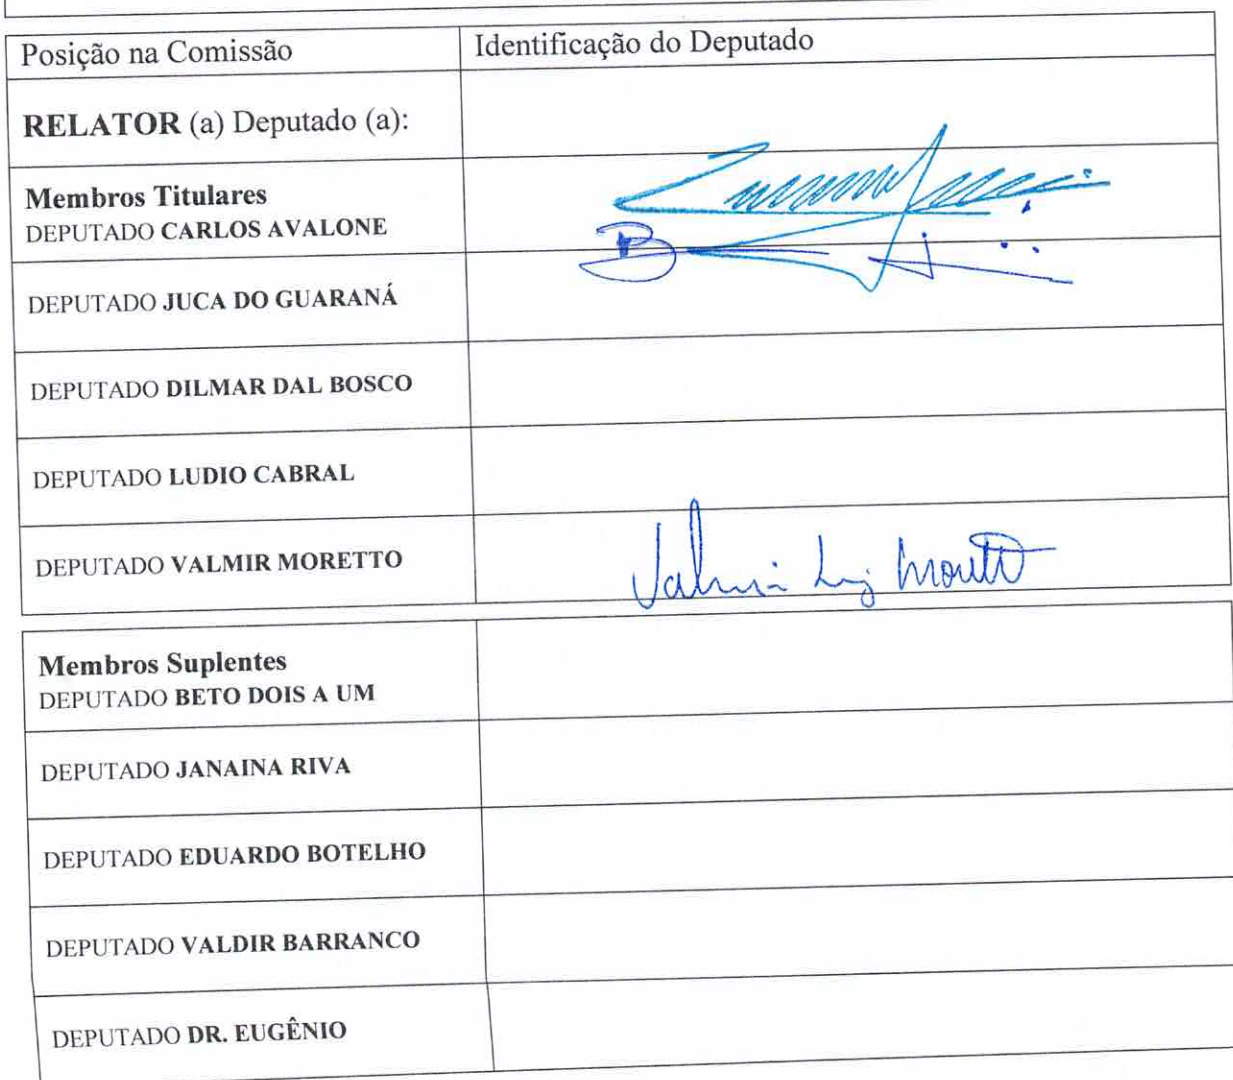 Posição na Comissão
Identificação do Deputado
RELATOR (a) Deputado (a):
Membros Titulares
DEPUTADO CARLOS AVALONE
DEPUTADO JUCA DO GUARANÁ
DEPUTADO DILMAR DAL BOSCO
DEPUTADO LUDIO CABRAL
DEPUTADO VALMIR MORETTO
Membros Suplentes
DEPUTADO BETO DOIS A UM
DEPUTADO JANAINA RIVA
DEPUTADO EDUARDO BOTELHO
DEPUTADO VALDIR BARRANCO
DEPUTADO DR. EUGÊNIO